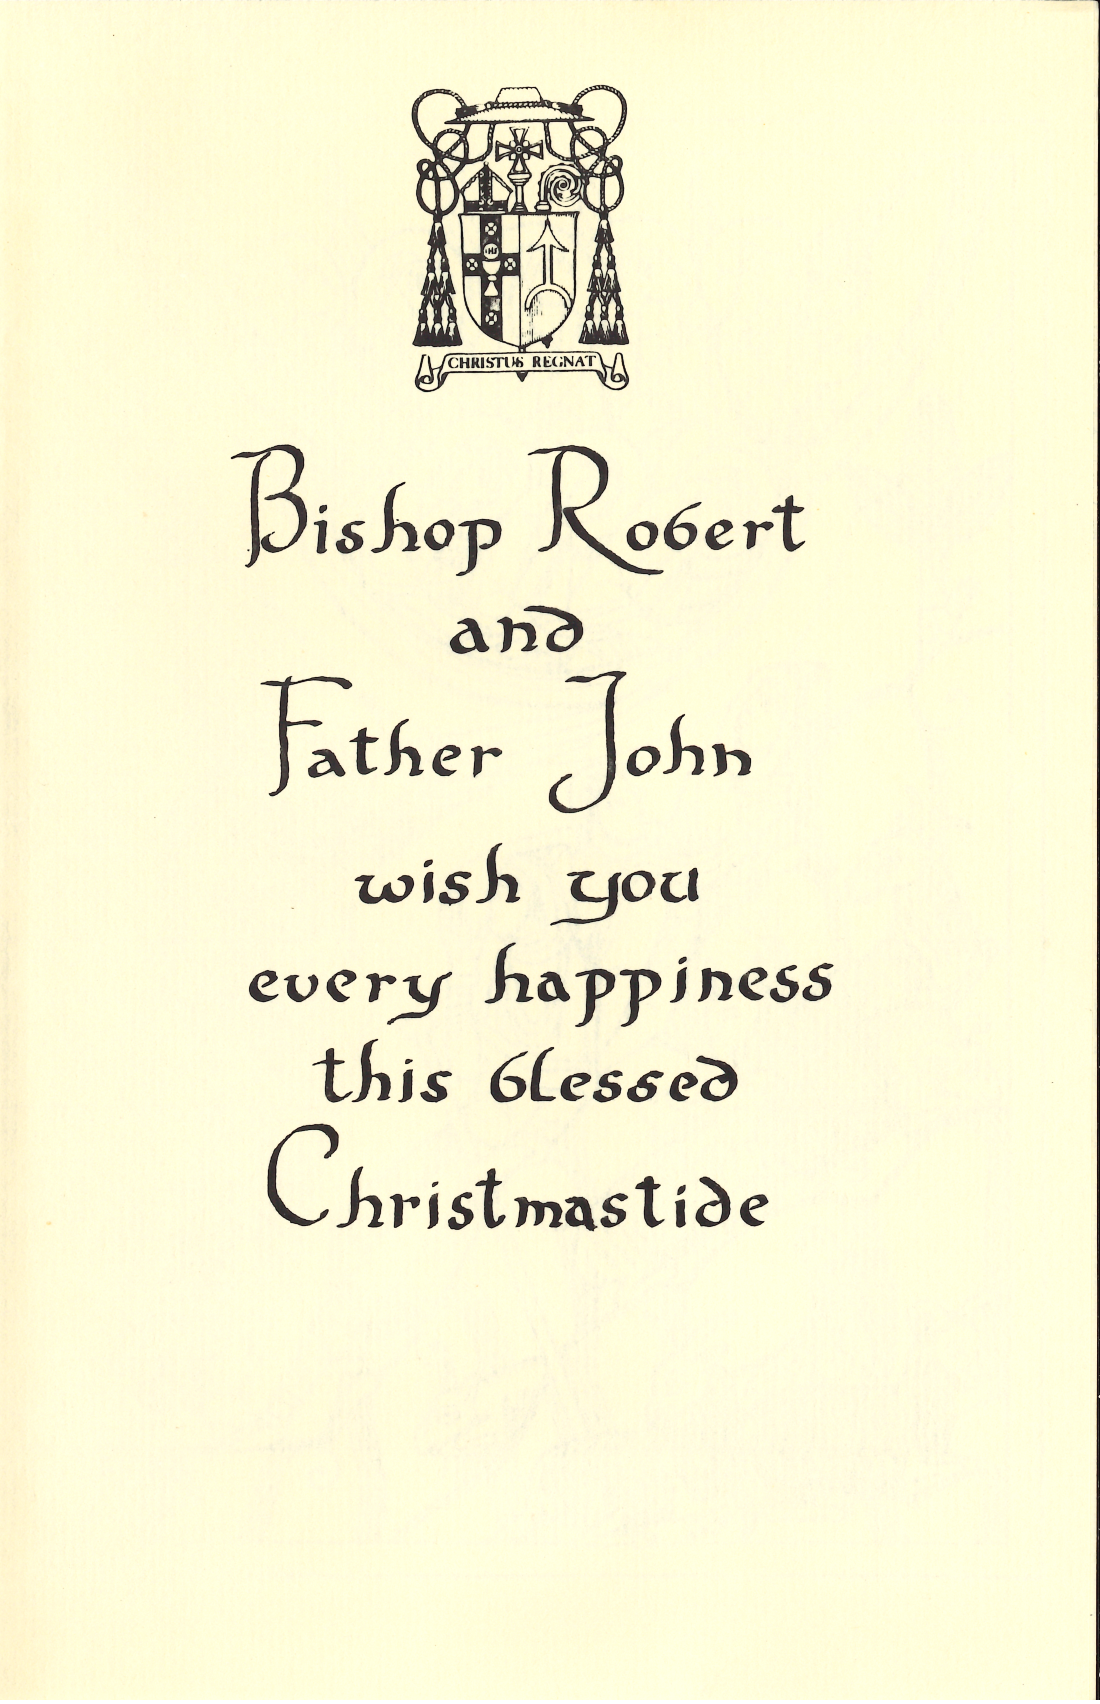 CHRISTUS REGNAT
Bishop Robert
and
Father John
wish you
every happiness
this blessed
Christmastide